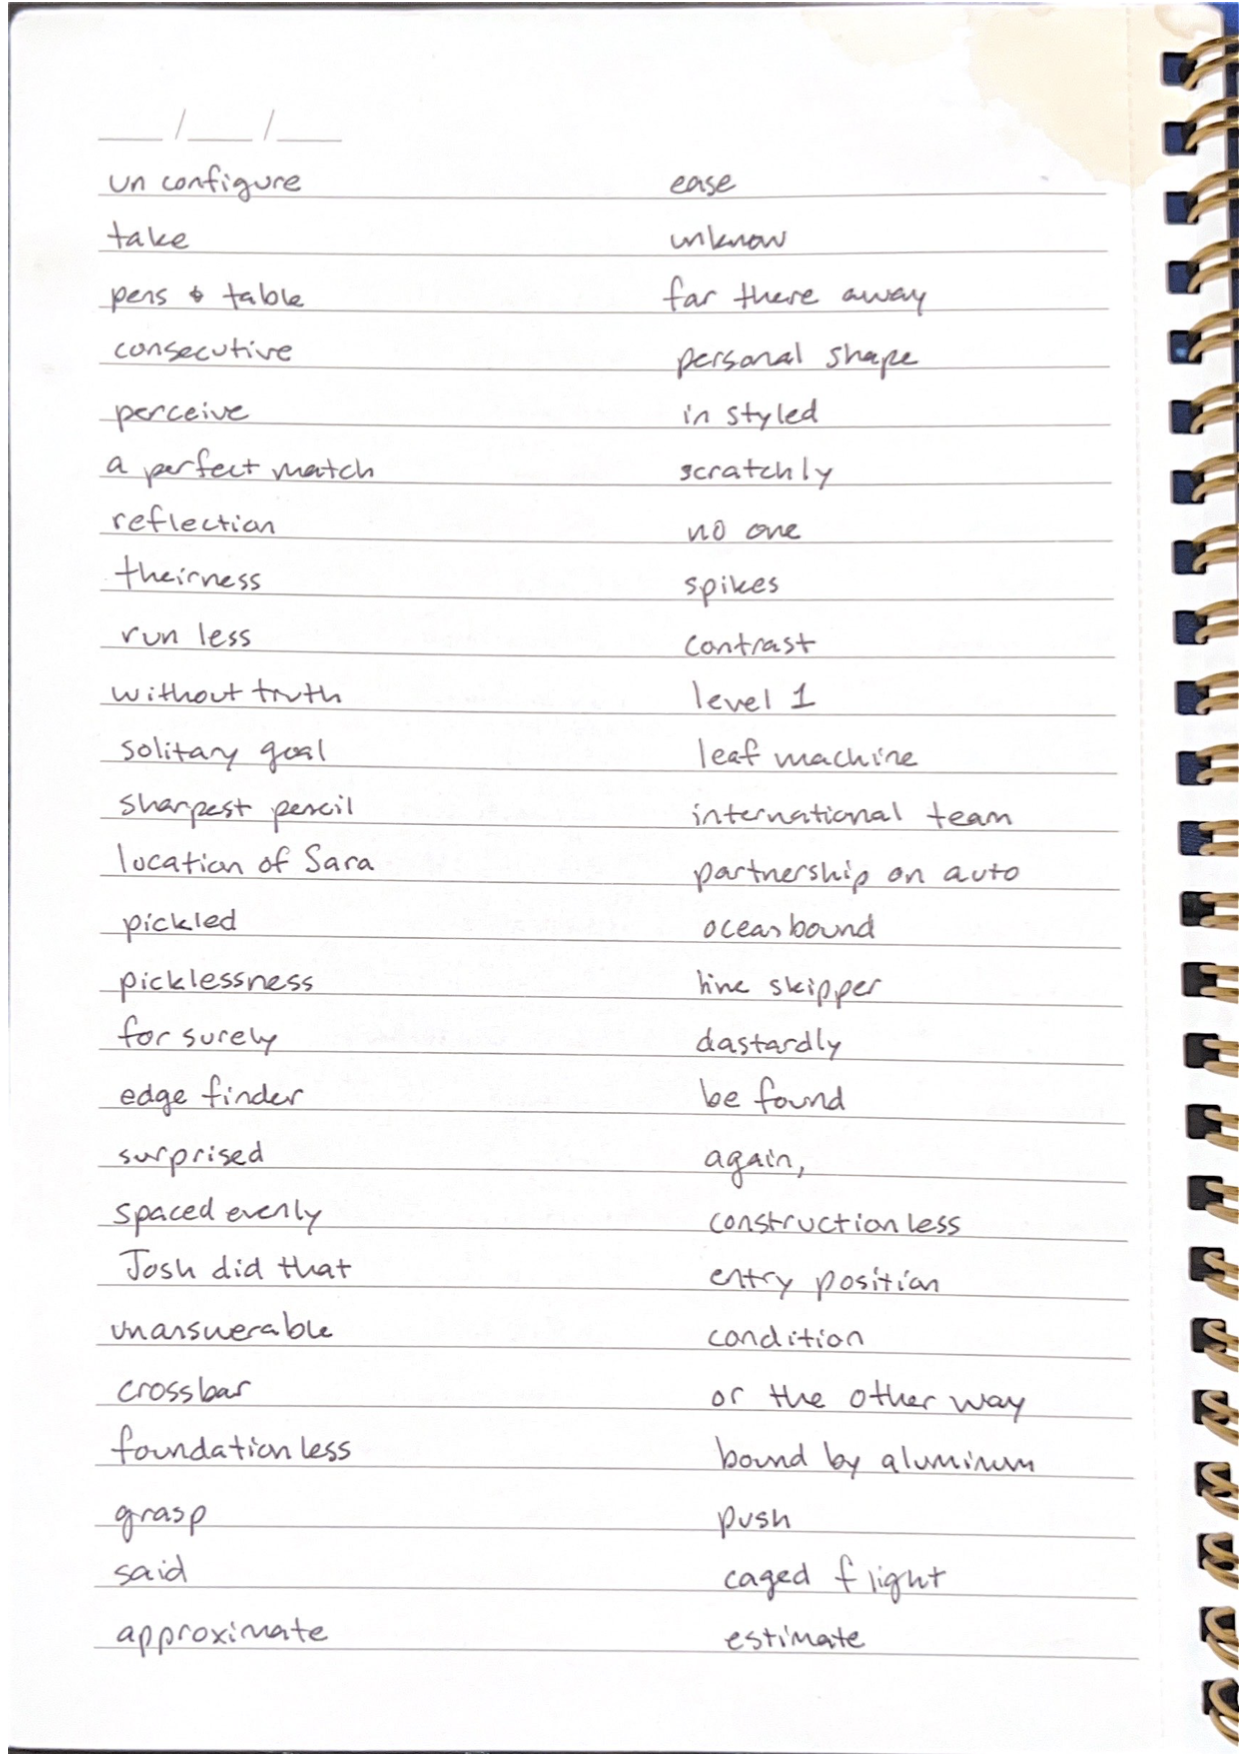 un configure
take
pens & table
consecutive
perceive
a perfect match
reflection
theirness
run less
without truth
solitary goal
sharpest pencil
location of Sara
pickled
picklessness
for surely
edge finder
surprised
spaced evenly
Josh did that
unanswerable
crossbar
foundationless
grasp
said
approximate
ease
unknow
far there away
personal shape
in styled
scratchly
no one
spikes
contrast
level 1
leaf machine
international team
partnership on auto
ocean bound
line skipper
dastardly
be found
again,
constructionless
entry position
condition
or the other way
bound by aluminum
push
caged flight
estimate